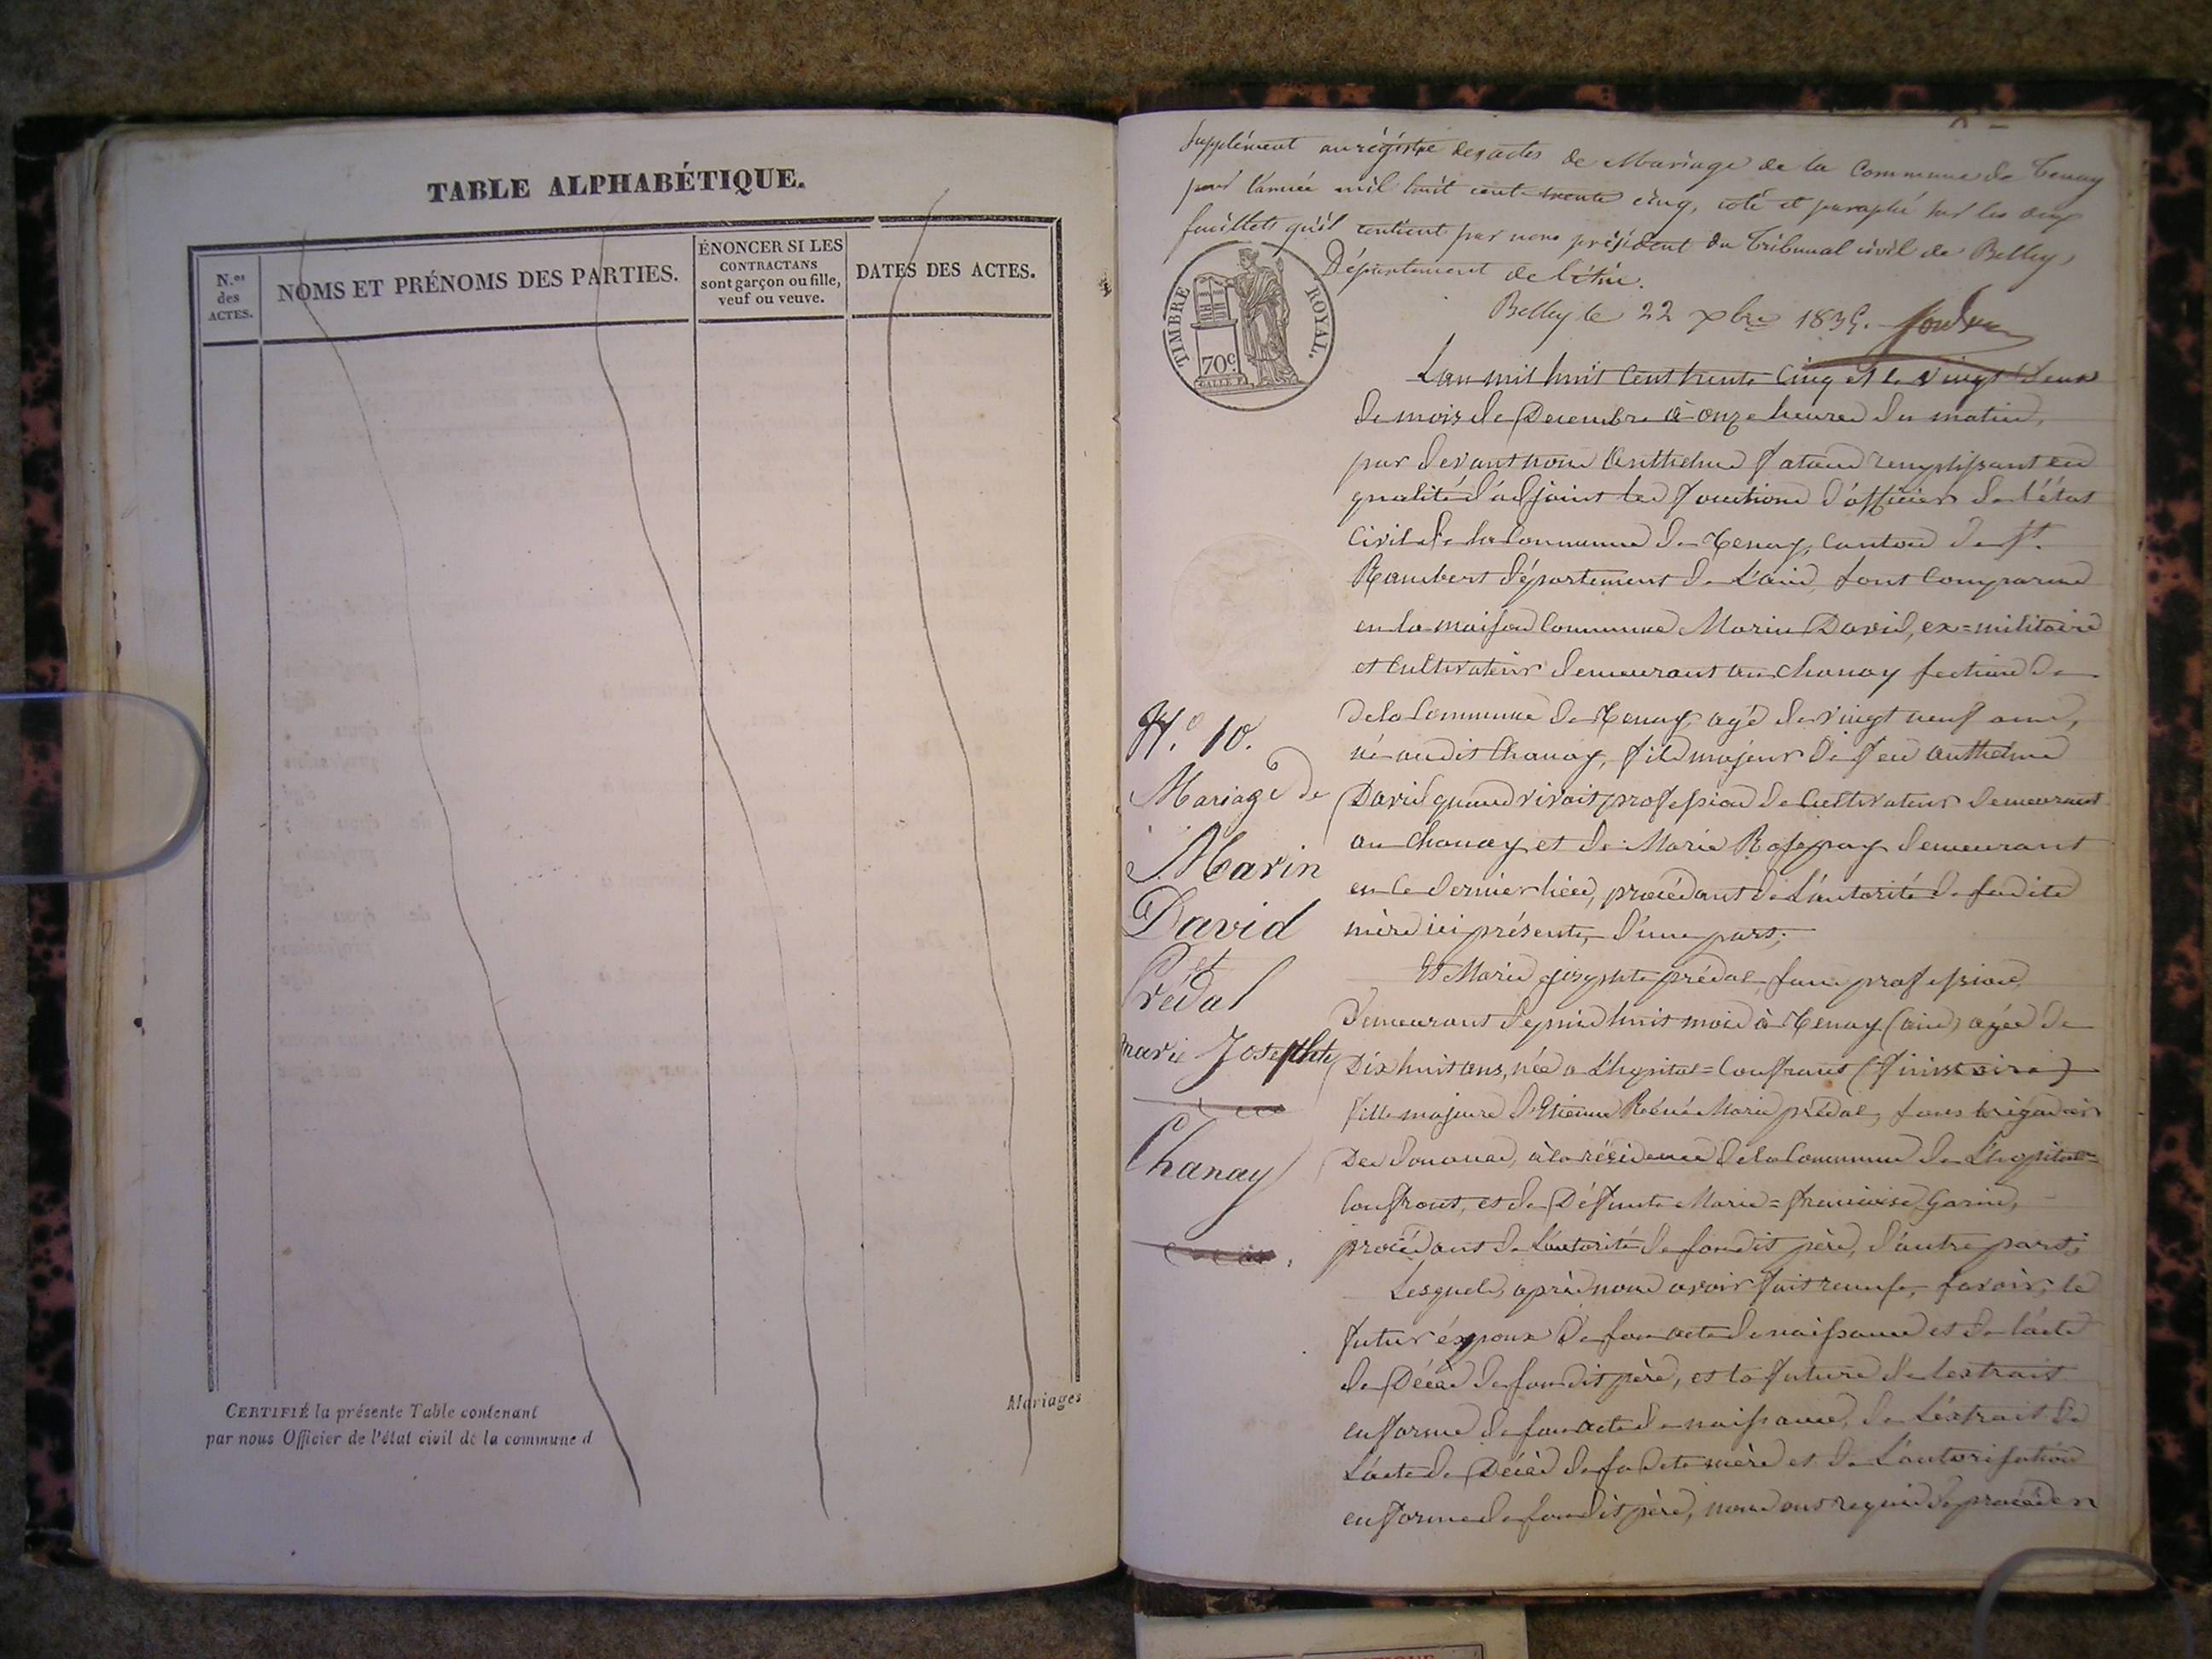 TABLE ALPHABÉTIQUE.
N.os des ACTES.
NOMS ET PRÉNOMS DES PARTIES.
ÉNONCER SI LES CONTRACTANS sont garçon ou fille, veuf ou veuve.
DATES DES ACTES.
CERTIFIÉ la présente Table contenant
par nous Officier de l'état civil de la commune d
Mariages
Supplément au régistre des actes de Mariage de la Commune de Tenay
pour l'année mil huit cent trente cinq, coté et paraphé sur les deux
feuillets qu'il contient par nous président du Tribunal civil de Belley,
Département de l'Ain.
Belley le 22 xbre 1835.
TIMBRE ROYAL.
70c.
L'an mil huit cent trente cinq et le vingt deux
du mois de Decembre à onze heures du matin,
par devant nous Anthelme remplissant en
qualité d'adjoint les fonctions d'officier de l'état
Civil de la Commune de Tenay, Canton de St.
Rambert département de L'ain, sont Comparus
en la maison Commune Marin David, ex=militaire
et Cultivateur demeurant au Chanay section de
de la Commune de Tenay agé de vingt neuf ans,
né au dit Chanay, fils majeur de feu Anthelme
David quand vivait profession de Cultivateur demeurant
au Chanay et de Marie demeurant
en ce dernier lieu, procédant de L'autorité de sadite
mère ici présente, d'une part;
Et Marie josephte prédal, sans profession
Demeurant depuis huit mois à Tenay (ain) agée de
Dix huit ans, née a L'hopital=Confrout (finisterre)
fille majeure d'Etienne Réné Marie prédal, sous brigadier
Des douanes, à la résidence de la Commune de L'hopital=
Confrout, et de Défunte Marie=francoise Garin,
procédant de L'autorité de son dit père, d'autre part;
Lesquels, après nous avoir fait remise, savoir; le
futur époux de son acte de naissance et de l'acte
de Décès de son dit père, et la future de l'extrait
en forme de son acte de naissance, de L'extrait de
L'acte de Décès de sa dite mère et de L'autorisation
en forme de son dit père, nous ont requis de procéder
N.o 10.
Mariage de
Marin
David
et
Prédal
marie Josephte
Chanay